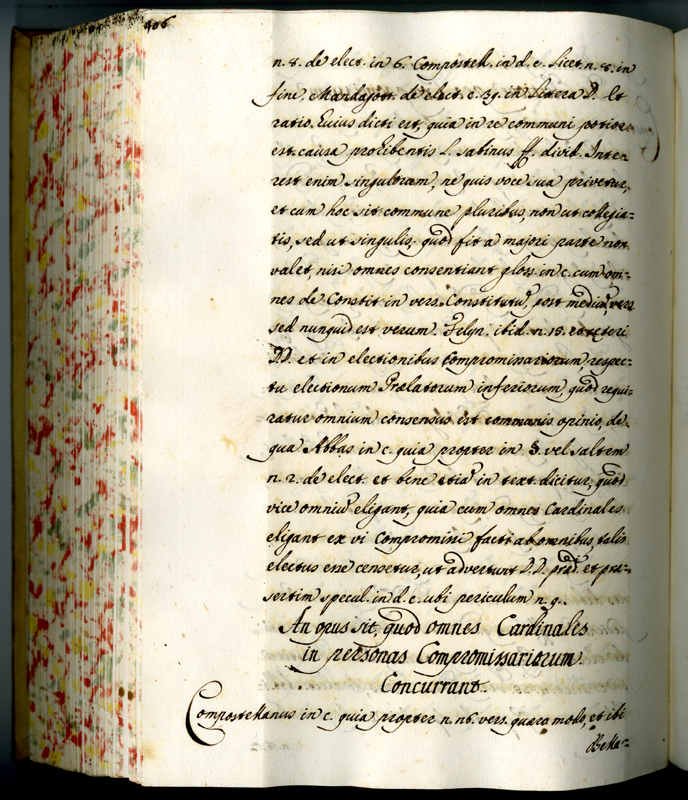 406
n. 8. de elect. in 6. Compostell. in d. c. Licet n. 8. in
fine, Mandagott. de elect. c. 39. in Litera D. Et
ratio Euius dicti est, quia in re communi potior
est causa proEibentis L. sabinus ff. divid. Inte=
rest enim singulorum, ne quis voce sua privetur,
et cum hoc sit commune pluribus, non ut collegia=
tis, sed ut singulis, quod fit a majori parte non
valet, nisi omnes consentiant glos. in c. cum om=
nes de Constit in vers. Constitutū, post mediū, vers.
sed nunquid est verum. Felyn. ibid. n. 18. et ceteri
DD. et in electionibus Compromissariorum, respec=
tu electionum Prælatorum inferiorum, quod requi=
ratur omnium consensus est communis opinio, de
qua Abbas in c. quia propter in §. vel saltem
n. 2. de elect. et bene etiā in text. dicitur, quod
vice omniū eligant, quia cum omnes Cardinales
eligant ex vi Compromissi facti ab omnibus, talis
electus esse censetur, ut advertunt D.D. præd. et præ=
sertim specul. in d. c. ubi periculum n. 9.
An opus sit, quod omnes Cardinales
in personas Compromissariorum
Concurrant.
Compostellanus in c. quia propter n. 16. vers. quæro modo, et ibi